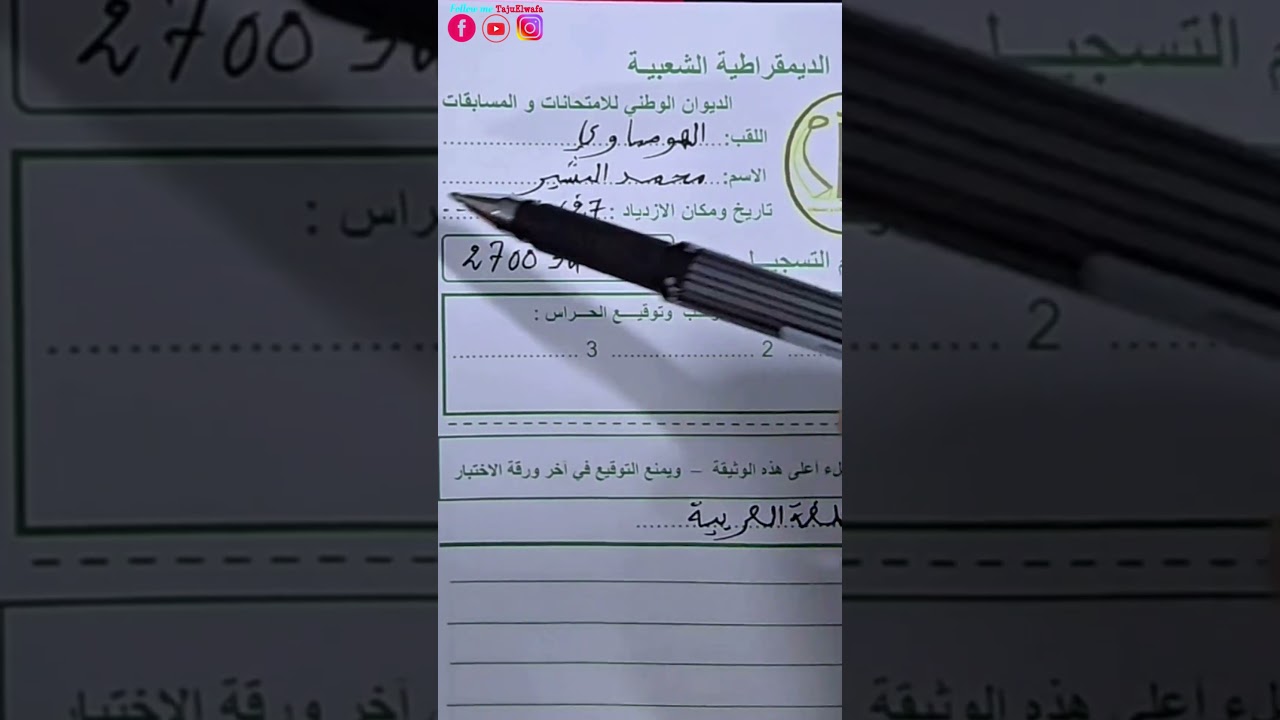 Follow me TajuElwafa
الديمقراطية الشعبية
الديوان الوطني للامتحانات و المسابقات
اللقب: الهوصاوي
الاسم: محمد البشير
تاريخ ومكان الازدياد :
التسجيل 2700
وتوقيع الحراس :
2 3
أعلى هذه الوثيقة – ويمنع التوقيع في آخر ورقة الاختبار
العربية